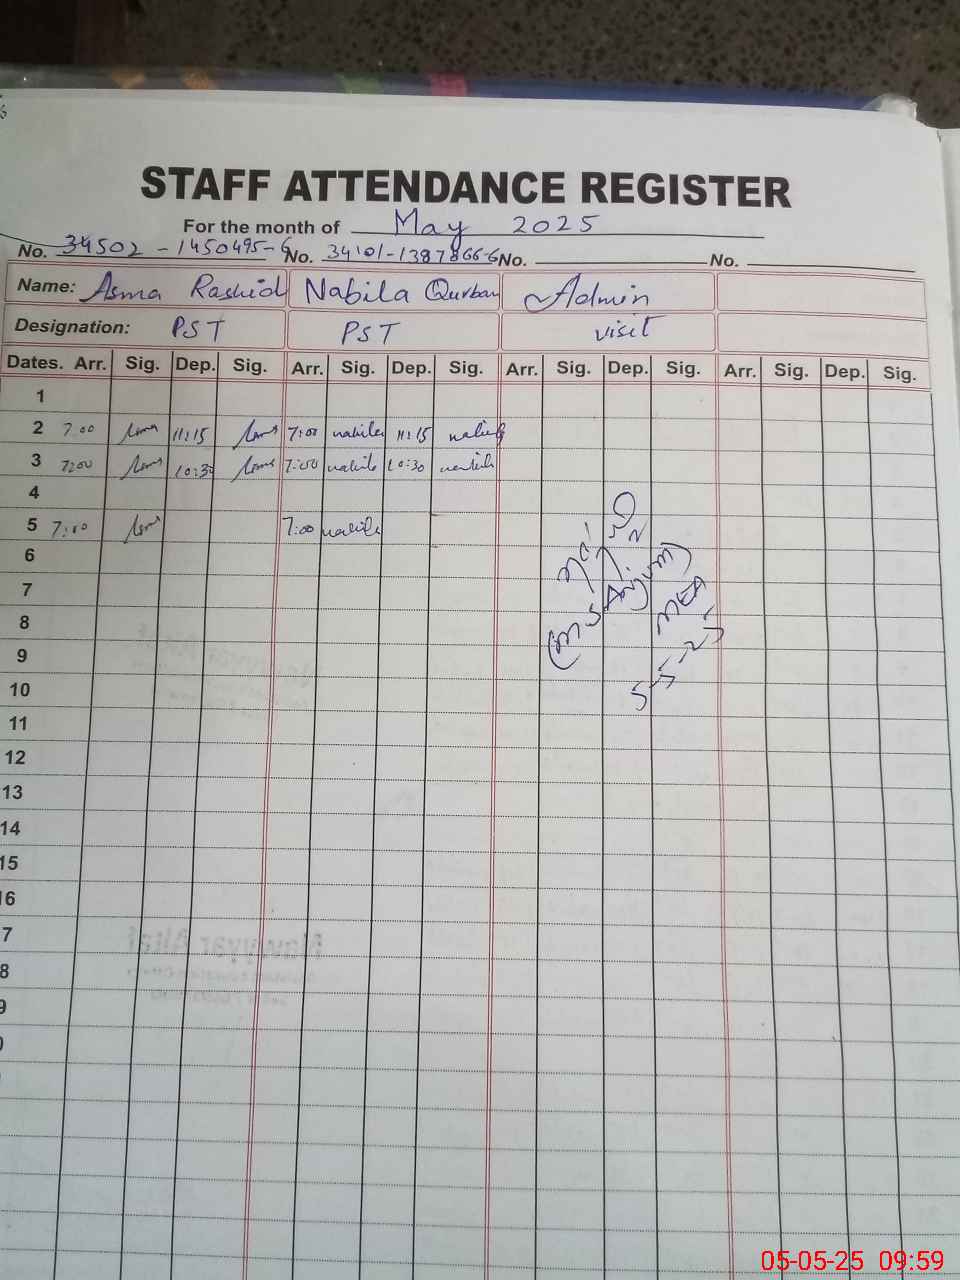 STAFF ATTENDANCE REGISTER
For the month of May 2025
No. 34502-1450495-6 No. 34101-1387866-6 No. No.
Name: Asma Rashid Nabila Qurban Admin
Designation: PST PST visit
Dates. Arr. Sig. Dep. Sig. Arr. Sig. Dep. Sig. Arr. Sig. Dep. Sig. Arr. Sig. Dep. Sig.
1
2 7:00 Asma 11:15 Asma 7:00 nabila 11:15 nabila
3 7:00 Asma 10:30 Asma 7:00 nabila 10:30 nabila
4
5 7:00 Asma 7:00 nabila
6
7
8
9
10
11
12
13
14
15
16
7
8
9
(M S Anjum)
MEA
5-5-25
Nayyar Altaf
05-05-25 09:59